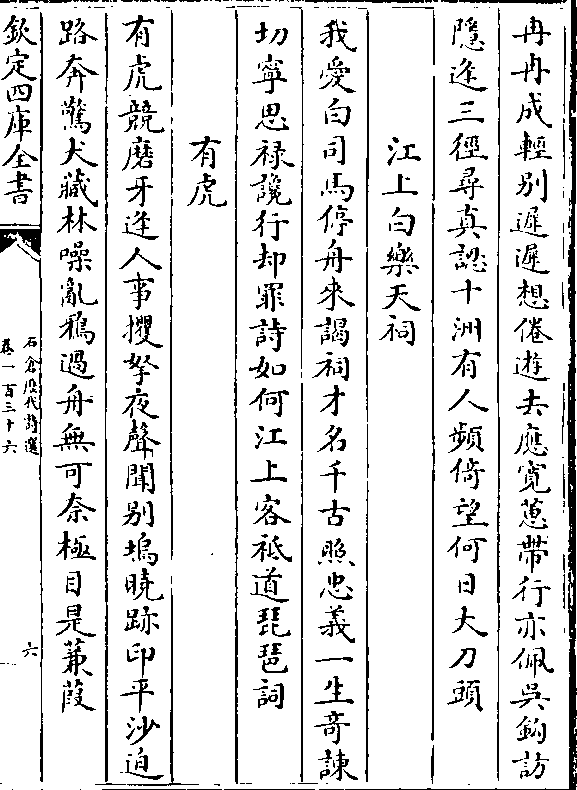 冉冉成輕别遲遲想倦遊去應寛蔥帶行亦佩吳鈎訪
隱逢三徑尋真認十洲有人頻倚望何日大刀頭
江上白樂天祠
我愛白司馬停舟來謁祠才名千古照忠義一生竒諫
切寧思禄讒行却罪詩如何江上客祗道琵琶詞
有虎
有虎競磨牙逢人事攫拏夜聲聞别塢曉跡印平沙迫
路奔驚犬藏林噪亂鴉過舟無可奈極目是蒹葭
欽定四庫全書
石倉歷代詩選
卷一百三十六
六